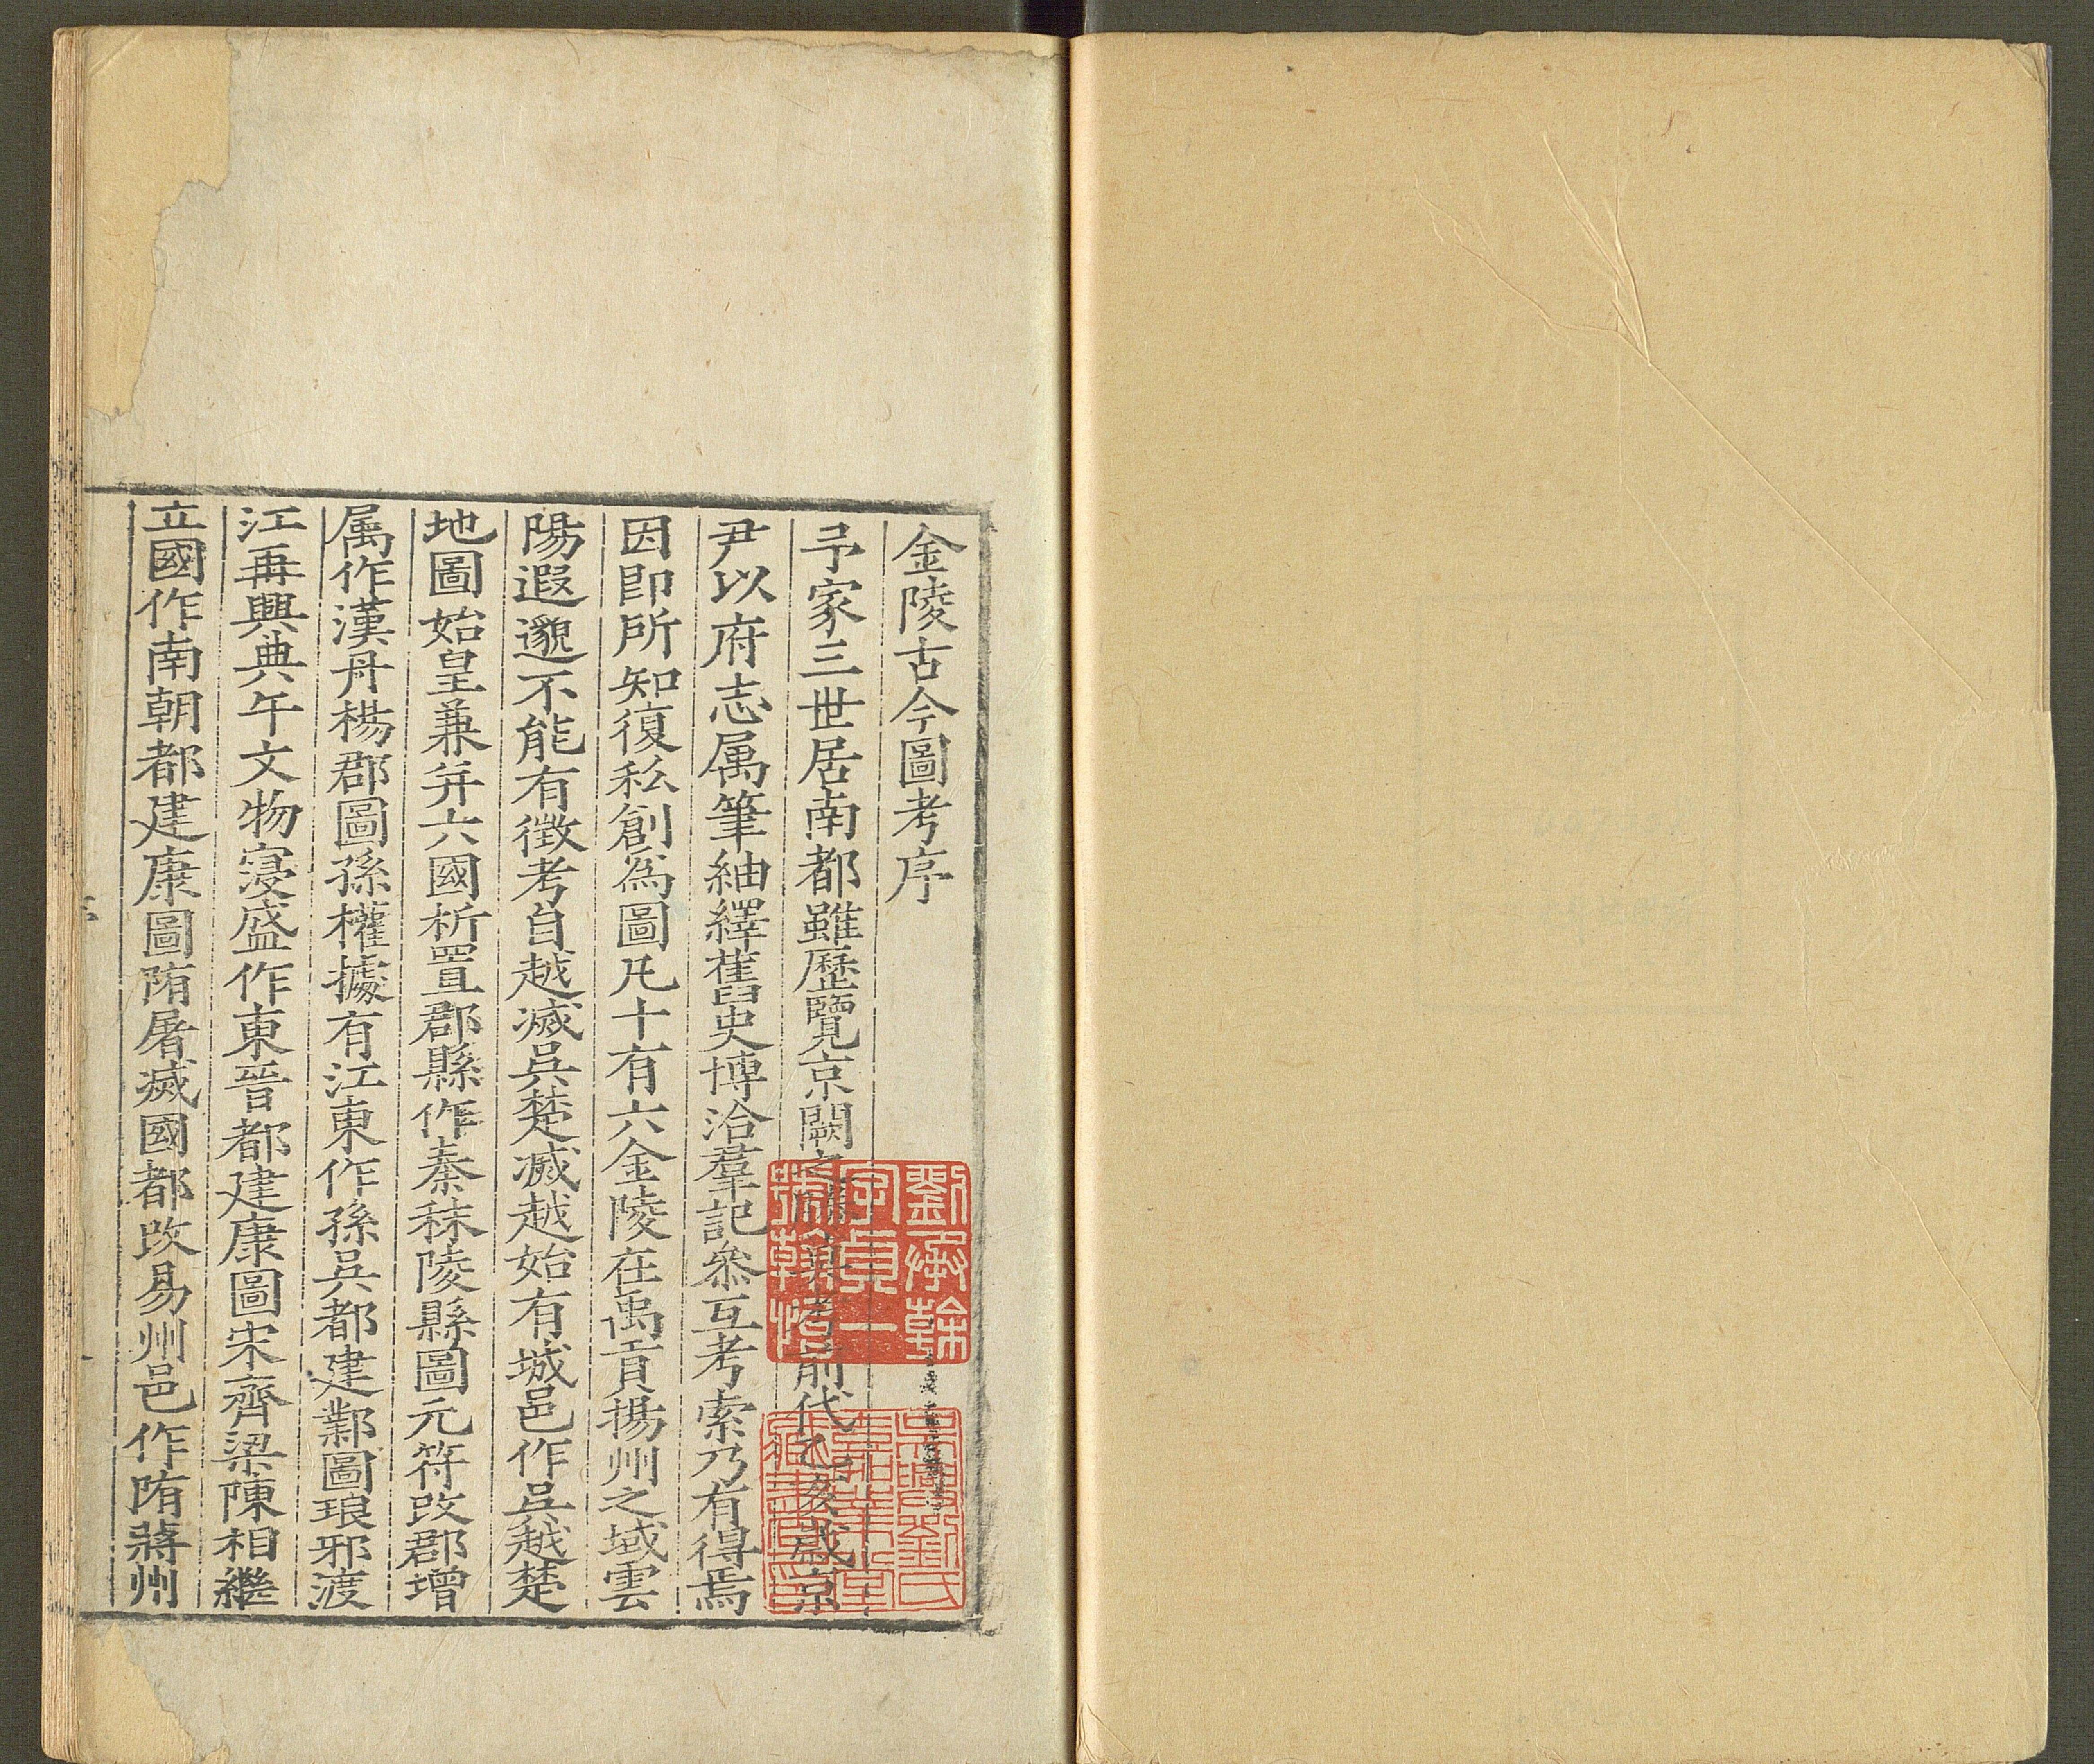 金陵古今圖考序
予家三世居南都雖歷覽京闕之勝莫考前代乙亥歲京
尹以府志属筆紬繹舊史博洽羣記叅互考索乃有得焉
因即所知復私創爲圖凡十有六金陵在禹貢揚州之域雲
陽遐邈不能有徵考自越滅吳楚滅越始有城邑作吳越楚
地圖始皇兼并六國析置郡縣作秦秣陵縣圖元符改郡增
属作漢丹楊郡圖孫權據有江東作孫吳都建鄴圖琅邪渡
江再興典午文物寖盛作東晉都建康圖宋齊梁陳相繼
立國作南朝都建康圖隋屠滅國都改易州邑作隋蔣州
劉承幹
字貞一
號翰怡
吳興劉氏
嘉業堂
藏書印